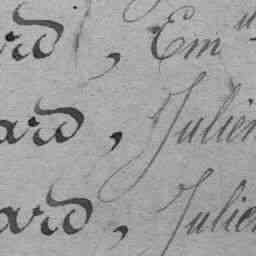 ard, Em
ard, Julien
ard, Julien